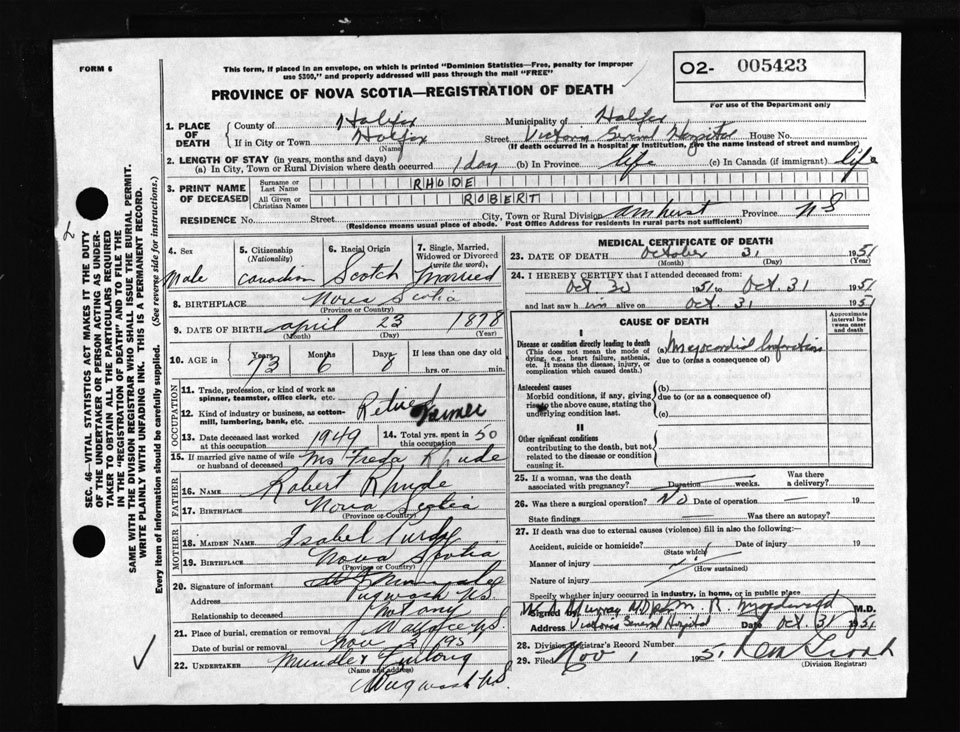 FORM 6
This form, if placed in an envelope, on which is printed "Dominion Statistics—Free, penalty for improper
use $300," and properly addressed will pass through the mail "FREE"
O2- 005423
For use of the Department only
PROVINCE OF NOVA SCOTIA—REGISTRATION OF DEATH
SEC. 46 VITAL STATISTICS ACT MAKES IT THE DUTY
OF THE UNDERTAKER OR PERSON ACTING AS UNDER-
TAKER TO OBTAIN ALL THE PARTICULARS REQUIRED
IN THE "REGISTRATION OF DEATH" AND TO FILE THE
SAME WITH THE DIVISION REGISTRAR WHO SHALL ISSUE THE BURIAL PERMIT.
WRITE PLAINLY WITH UNFADING INK. THIS IS A PERMANENT RECORD.
Every item of information should be carefully supplied. (See reverse side for instructions.)
1. PLACE OF DEATH
County of Halifax Municipality of Halifax
If in City or Town Halifax Street Victoria General Hospital House No.
(Name) (If death occurred in a hospital or institution, give the name instead of street and number)
2. LENGTH OF STAY (in years, months and days)
(a) In City, Town or Rural Division where death occurred 1 day (b) In Province life (c) In Canada (if immigrant) life
3. PRINT NAME OF DECEASED
Surname or Last Name RHUDE
All Given or Christian Names ROBERT
RESIDENCE No. Street City, Town or Rural Division Amherst Province NS
(Residence means usual place of abode. Post Office Address for residents in rural parts not sufficient)
4. Sex Male
5. Citizenship (Nationality) Canadian
6. Racial Origin Scotch
7. Single, Married, Widowed or Divorced (write the word), Married
8. BIRTHPLACE Nova Scotia
(Province or Country)
9. DATE OF BIRTH April 23 1878
(Month) (Day) (Year)
10. AGE in Years 73 Months 6 Days 8 If less than one day old
hrs. or min.
OCCUPATION
11. Trade, profession, or kind of work as
spinner, teamster, office clerk, etc. Retired
12. Kind of industry or business, as cotton-
mill, lumbering, bank, etc. Farmer
13. Date deceased last worked at this occupation 1949
14. Total yrs. spent in this occupation 50
15. If married give name of wife or husband of deceased Mrs Freda Rhude
FATHER
16. NAME Robert Rhude
17. BIRTHPLACE Nova Scotia
(Province or Country)
MOTHER
18. MAIDEN NAME Isabel Purdy
19. BIRTHPLACE Nova Scotia
(Province or Country)
20. Signature of informant
Address Pugwash NS.
Relationship to deceased
21. Place of burial, cremation or removal Wallace NS.
Date of burial or removal Nov 2 195
22. UNDERTAKER
(Name and address)
Pugwash NS.
MEDICAL CERTIFICATE OF DEATH
23. DATE OF DEATH October 31 1951
(Month) (Day) (Year)
24. I HEREBY CERTIFY that I attended deceased from:
Oct 30 1951 to Oct. 31 1951
and last saw him alive on Oct. 31 1951
CAUSE OF DEATH
Approximate interval between onset and death
I
Disease or condition directly leading to death
(This does not mean the mode of
dying, e.g., heart failure, asthenia,
etc. It means the disease, injury, or
complication which caused death.)
(a) Myocardial Infarction
due to (or as a consequence of)
Antecedent causes
Morbid conditions, if any, giving
rise to the above cause, stating the
underlying condition last.
(b)
due to (or as a consequence of)
(c)
II
Other significant conditions
contributing to the death, but not
related to the disease or condition
causing it.
25. If a woman, was the death associated with pregnancy? Duration weeks. Was there a delivery?
26. Was there a surgical operation? No Date of operation — 19
State findings Was there an autopsy?
27. If death was due to external causes (violence) fill in also the following:—
Accident, suicide or homicide? Date of injury 19
(State which)
Manner of injury
(How sustained)
Nature of injury
Specify whether injury occurred in industry, in home, or in public place
Signed by M.D.
Address Victoria General Hospital Date Oct. 31 1951
28. Division Registrar's Record Number
29. Filed Nov 1 1951
(Division Registrar)